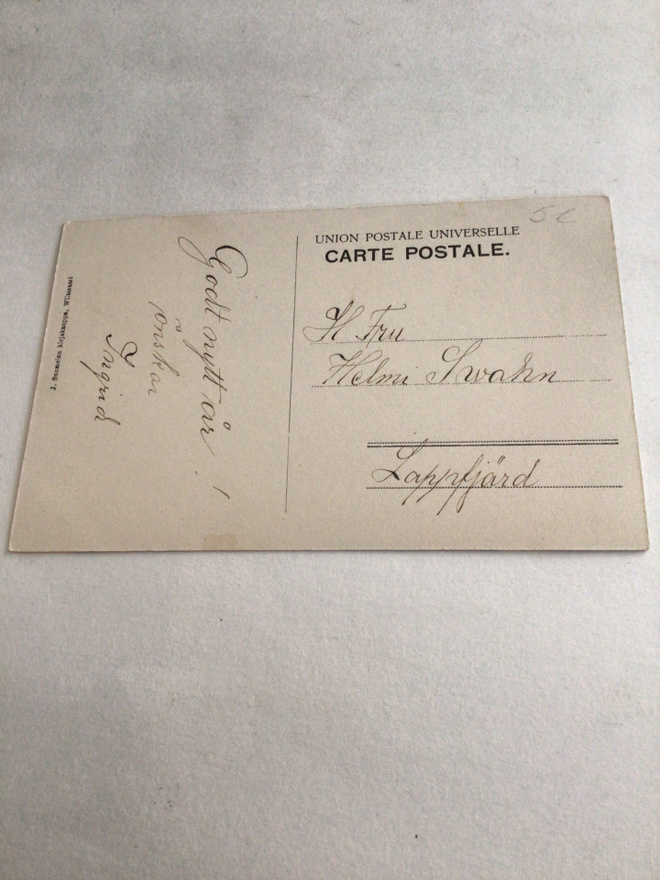 J. Suomelan kirjakauppa, Wilmanni
Godt nytt år!
önskar
Ingrid
UNION POSTALE UNIVERSELLE
CARTE POSTALE.
H Fru
Helmi Swahn
Lappfjärd